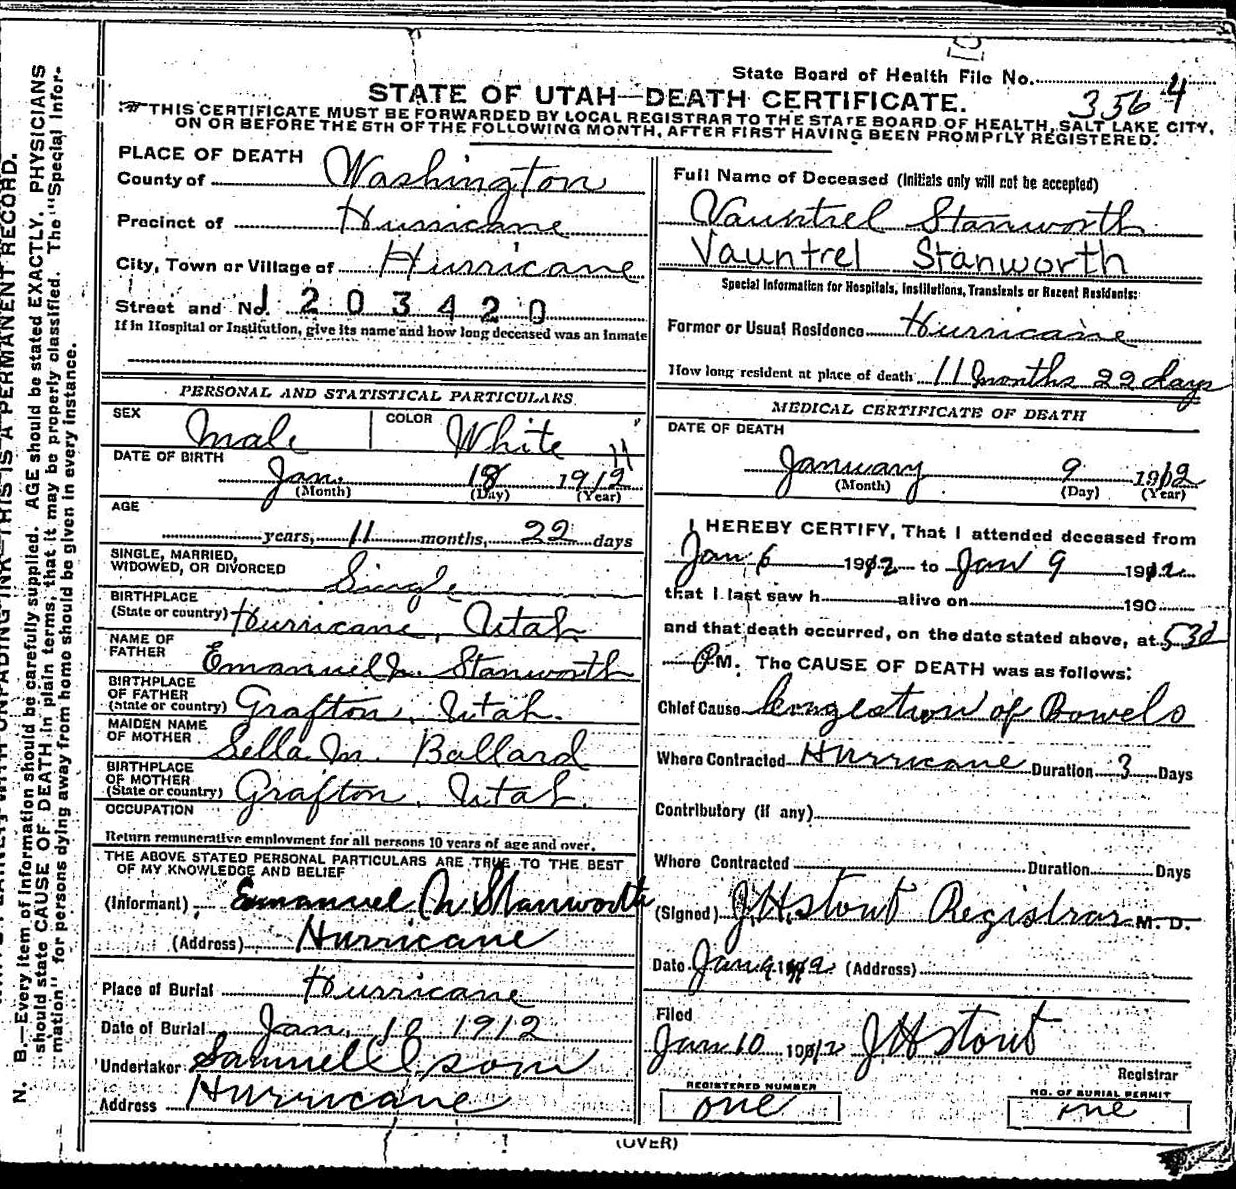 State Board of Health File No. 356 4
STATE OF UTAH—DEATH CERTIFICATE.
THIS CERTIFICATE MUST BE FORWARDED BY LOCAL REGISTRAR TO THE STATE BOARD OF HEALTH, SALT LAKE CITY,
ON OR BEFORE THE 5TH OF THE FOLLOWING MONTH, AFTER FIRST HAVING BEEN PROMPTLY REGISTERED.
N. B.—Every item of information should be carefully supplied. AGE should be stated EXACTLY. PHYSICIANS
should state CAUSE OF DEATH in plain terms, that it may be properly classified. The "Special Infor-
mation" for persons dying away from home should be given in every instance.
WITH UNFADING INK—THIS IS A PERMANENT RECORD.
PLACE OF DEATH
County of Washington
Precinct of Hurricane
City, Town or Village of Hurricane
Street and No. 1203420
If in Hospital or Institution, give its name and how long deceased was an Inmate
PERSONAL AND STATISTICAL PARTICULARS
SEX Male COLOR White
DATE OF BIRTH Jan. 18 1912 11
(Month) (Day) (Year)
AGE
years, 11 months, 22 days
SINGLE, MARRIED,
WIDOWED, OR DIVORCED Single
BIRTHPLACE
(State or country) Hurricane, Utah
NAME OF
FATHER Emanuel N. Stanworth
BIRTHPLACE
OF FATHER
(State or country) Grafton, Utah.
MAIDEN NAME
OF MOTHER Sella M. Ballard
BIRTHPLACE
OF MOTHER
(State or country) Grafton, Utah.
OCCUPATION
Return remunerative employment for all persons 10 years of age and over.
THE ABOVE STATED PERSONAL PARTICULARS ARE TRUE TO THE BEST
OF MY KNOWLEDGE AND BELIEF
(Informant) Emanuel N Stanworth
(Address) Hurricane
Place of Burial Hurricane
Date of Burial Jan. 10 1912
Undertaker Samuel Ison
Address Hurricane
Full Name of Deceased (Initials only will not be accepted)
Vauntrel Stanworth
Vauntrel Stanworth
Special Information for Hospitals, Institutions, Transients or Recent Residents:
Former or Usual Residence Hurricane
How long resident at place of death 11 Months 22 days
MEDICAL CERTIFICATE OF DEATH
DATE OF DEATH
January 9 1912
(Month) (Day) (Year)
I HEREBY CERTIFY, That I attended deceased from
Jan 6 1912 to Jan 9 1912
that I last saw h alive on 190
and that death occurred, on the date stated above, at 530
P M. The CAUSE OF DEATH was as follows:
Chief Cause Congestion of Bowels
Where Contracted Hurricane Duration 3 Days
Contributory (if any)
Where Contracted Duration Days
(Signed) J.H. Stout Registrar M. D.
Date Jan 9 1912 (Address)
Filed
Jan 10 1912 J H Stout
Registrar
REGISTERED NUMBER
one
NO. OF BURIAL PERMIT
one
(OVER)